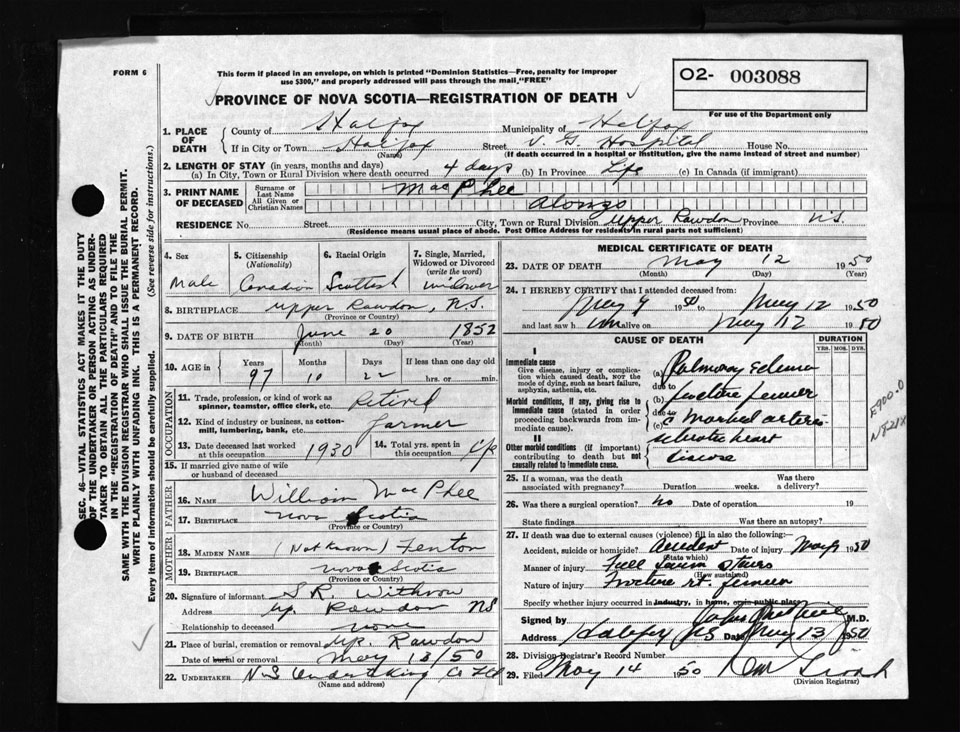 FORM 6
This form if placed in an envelope, on which is printed "Dominion Statistics—Free, penalty for improper
use $300," and properly addressed will pass through the mail, "FREE"
O2- 003088
For use of the Department only
PROVINCE OF NOVA SCOTIA—REGISTRATION OF DEATH
SEC. 46—VITAL STATISTICS ACT MAKES IT THE DUTY
OF THE UNDERTAKER OR PERSON ACTING AS UNDER-
TAKER TO OBTAIN ALL THE PARTICULARS REQUIRED
IN THE "REGISTRATION OF DEATH" AND TO FILE THE
SAME WITH THE DIVISION REGISTRAR WHO SHALL ISSUE THE BURIAL PERMIT.
WRITE PLAINLY WITH UNFADING INK. THIS IS A PERMANENT RECORD.
Every item of information should be carefully supplied. (See reverse side for instructions.)
1. PLACE OF DEATH
County of Halifax Municipality of Halifax
If in City or Town Halifax Street V. G. Hospital House No.
(Name) (If death occurred in a hospital or institution, give the name instead of street and number)
2. LENGTH OF STAY (in years, months and days)
(a) In City, Town or Rural Division where death occurred 4 days (b) In Province Life (c) In Canada (if immigrant)
3. PRINT NAME OF DECEASED
Surname or Last Name MacPhee
All Given or Christian Names Alonzo
RESIDENCE No. Street City, Town or Rural Division Upper Rawdon Province N.S.
(Residence means usual place of abode. Post Office Address for residents in rural parts not sufficient)
4. Sex Male
5. Citizenship (Nationality) Canadian
6. Racial Origin Scottish
7. Single, Married, Widowed or Divorced (write the word) widower
8. BIRTHPLACE Upper Rawdon, N.S.
(Province or Country)
9. DATE OF BIRTH June 20 1852
(Month) (Day) (Year)
10. AGE in Years Months Days If less than one day old
97 10 22 hrs. or min.
OCCUPATION
11. Trade, profession, or kind of work as Retired
spinner, teamster, office clerk, etc.
12. Kind of industry or business, as cotton- Farmer
mill, lumbering, bank, etc.
13. Date deceased last worked at this occupation 1930
14. Total yrs. spent in this occupation Life
15. If married give name of wife
or husband of deceased
FATHER
16. NAME William MacPhee
17. BIRTHPLACE Nova Scotia
(Province or Country)
MOTHER
18. MAIDEN NAME (Not Known) Fenton
19. BIRTHPLACE Nova Scotia
(Province or Country)
20. Signature of informant S. R. Withrow
Address Up. Rawdon NS
Relationship to deceased none
21. Place of burial, cremation or removal Up. Rawdon
Date of burial or removal May 13/50
22. UNDERTAKER N.S Undertaking Co Ltd
(Name and address)
MEDICAL CERTIFICATE OF DEATH
23. DATE OF DEATH May 12 1950
(Month) (Day) (Year)
24. I HEREBY CERTIFY that I attended deceased from:
May 9 1950 to May 12 1950
and last saw him alive on May 12 1950
CAUSE OF DEATH
DURATION
YRS. MOS. DYS.
I
Immediate cause
Give disease, injury or complica-
tion which caused death, NOT the
mode of dying, such as heart failure,
asphyxia, asthenia, etc.
(a) Pulmonary Edema
due to
Morbid conditions, if any, giving rise to
immediate cause (stated in order
proceeding backwards from im-
mediate cause).
(b) fracture femur
due to
(c) Marked arterio-
sclerotic heart
disease
II
Other morbid conditions (if important)
contributing to death but not
causally related to immediate cause.
E900.0
N821X
25. If a woman, was the death Was there
associated with pregnancy? Duration weeks. a delivery?
26. Was there a surgical operation? No Date of operation 19
State findings Was there an autopsy?
27. If death was due to external causes (violence) fill in also the following:—
Accident, suicide or homicide? Accident Date of injury May 9 1950
(State which)
Manner of injury Fall down stairs
(How sustained)
Nature of injury Fracture rt. femur
Specify whether injury occurred in industry, in home, or in public place
Signed by M.D.
Address Halifax NS Date May 13 1950
28. Division Registrar's Record Number
29. Filed May 14 1950
(Division Registrar)